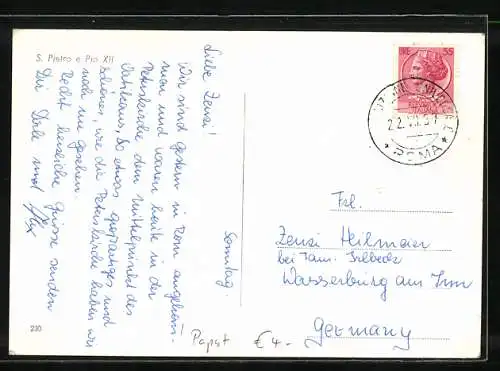 S. Pietro e Pio XII
Sonntag.
Liebe Zenzi!
Wir sind gestern in Rom angekom-
men und waren heute in der
Peterskirche dem Mittelpunkt des
Vatikans. So etwas großartiges und
schönes, wie die Peterskirche haben wir
noch nie gesehen.
Recht herzliche Grüsse senden
Dir und
35
ROMA
Frl.
Zenzi Heilmaier
bei Fam.
Wasserburg am Inn
Germany
230
Papst € 4.-